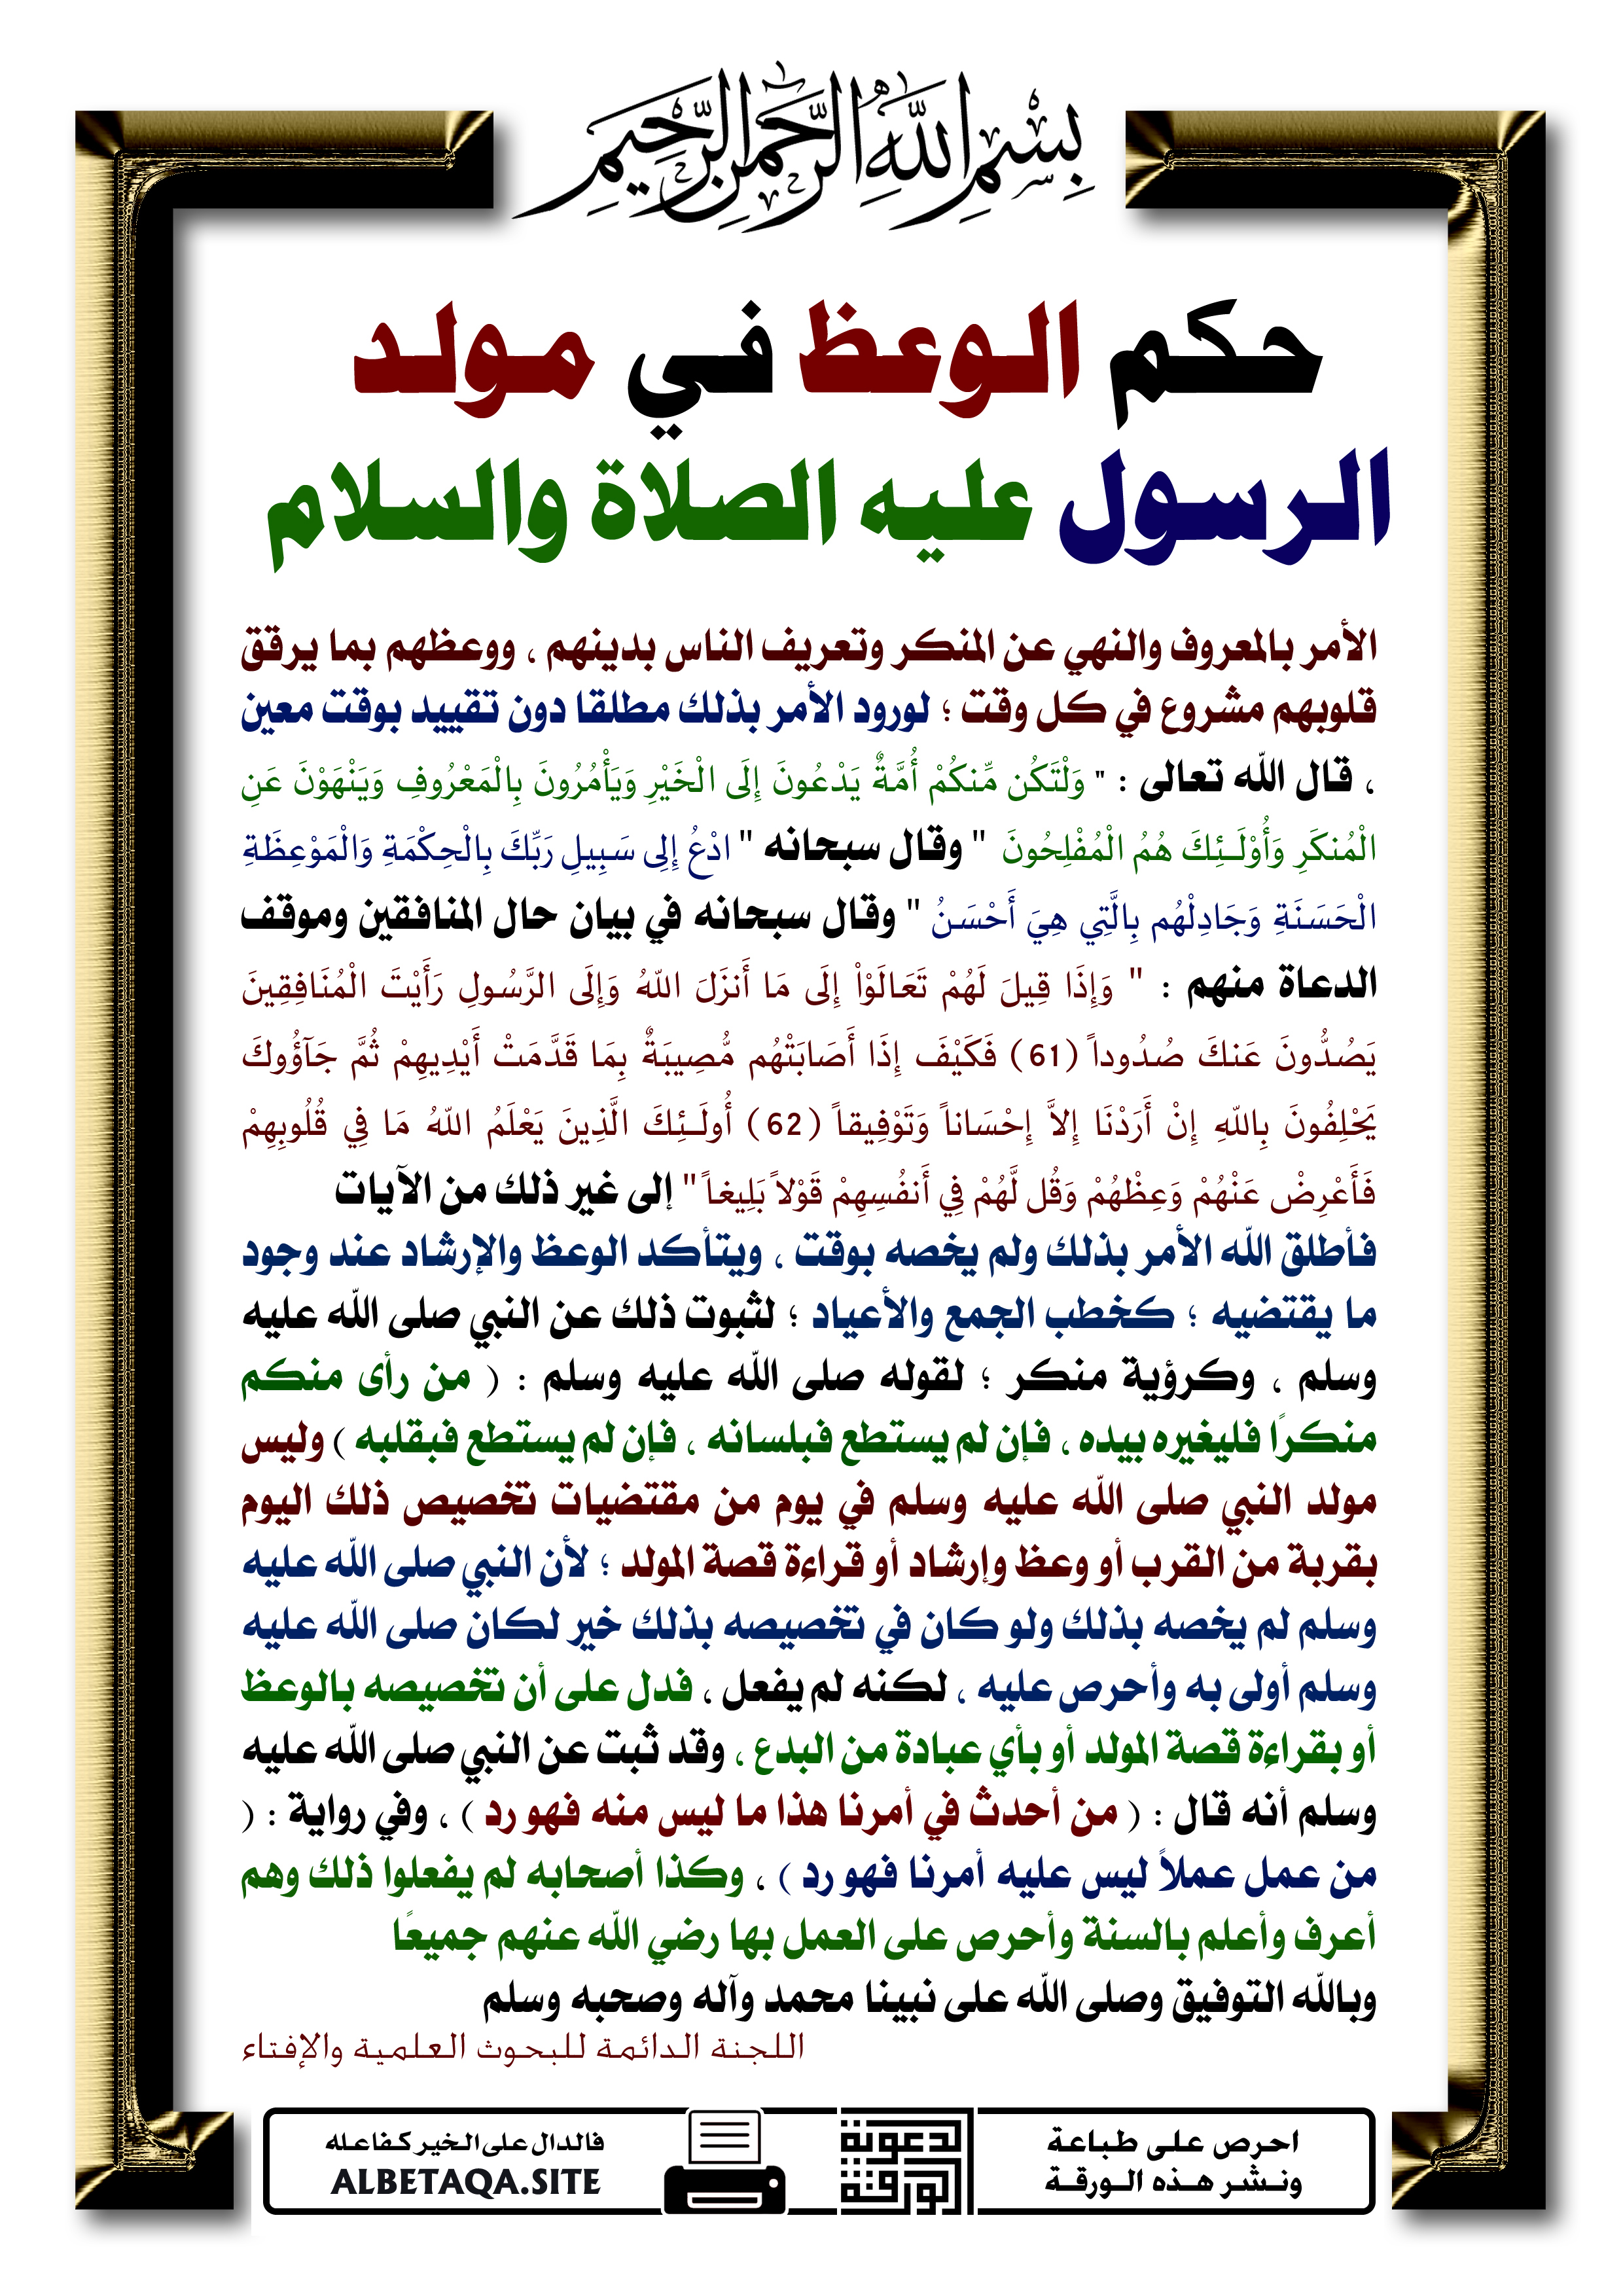 بِسْمِ اللَّهِ الرَّحْمَنِ الرَّحِيمِ
حكم الوعظ في مولد
الرسول عليه الصلاة والسلام
الأمر بالمعروف والنهي عن المنكر وتعريف الناس بدينهم ، ووعظهم بما يرقق
قلوبهم مشروع في كل وقت ؛ لورود الأمر بذلك مطلقا دون تقييد بوقت معين
، قال الله تعالى : " وَلْتَكُن مِّنكُمْ أُمَّةٌ يَدْعُونَ إِلَى الْخَيْرِ وَيَأْمُرُونَ بِالْمَعْرُوفِ وَيَنْهَوْنَ عَنِ
الْمُنكَرِ وَأُوْلَـئِكَ هُمُ الْمُفْلِحُونَ " وقال سبحانه " ادْعُ إِلِى سَبِيلِ رَبِّكَ بِالْحِكْمَةِ وَالْمَوْعِظَةِ
الْحَسَنَةِ وَجَادِلْهُم بِالَّتِي هِيَ أَحْسَنُ " وقال سبحانه في بيان حال المنافقين وموقف
الدعاة منهم : " وَإِذَا قِيلَ لَهُمْ تَعَالَوْاْ إِلَى مَا أَنزَلَ اللّهُ وَإِلَى الرَّسُولِ رَأَيْتَ الْمُنَافِقِينَ
يَصُدُّونَ عَنكَ صُدُوداً (61) فَكَيْفَ إِذَا أَصَابَتْهُم مُّصِيبَةٌ بِمَا قَدَّمَتْ أَيْدِيهِمْ ثُمَّ جَآؤُوكَ
يَحْلِفُونَ بِاللّهِ إِنْ أَرَدْنَا إِلاَّ إِحْسَاناً وَتَوْفِيقاً (62) أُولَـئِكَ الَّذِينَ يَعْلَمُ اللّهُ مَا فِي قُلُوبِهِمْ
فَأَعْرِضْ عَنْهُمْ وَعِظْهُمْ وَقُل لَّهُمْ فِي أَنفُسِهِمْ قَوْلاً بَلِيغاً " إلى غير ذلك من الآيات
فأطلق الله الأمر بذلك ولم يخصه بوقت ، ويتأكد الوعظ والإرشاد عند وجود
ما يقتضيه ؛ كخطب الجمع والأعياد ؛ لثبوت ذلك عن النبي صلى الله عليه
وسلم ، وكرؤية منكر ؛ لقوله صلى الله عليه وسلم : ( من رأى منكم
منكرًا فليغيره بيده ، فإن لم يستطع فبلسانه ، فإن لم يستطع فبقلبه ) وليس
مولد النبي صلى الله عليه وسلم في يوم من مقتضيات تخصيص ذلك اليوم
بقربة من القرب أو وعظ وإرشاد أو قراءة قصة المولد ؛ لأن النبي صلى الله عليه
وسلم لم يخصه بذلك ولو كان في تخصيصه بذلك خير لكان صلى الله عليه
وسلم أولى به وأحرص عليه ، لكنه لم يفعل ، فدل على أن تخصيصه بالوعظ
أو بقراءة قصة المولد أو بأي عبادة من البدع ، وقد ثبت عن النبي صلى الله عليه
وسلم أنه قال : ( من أحدث في أمرنا هذا ما ليس منه فهو رد ) ، وفي رواية : (
من عمل عملاً ليس عليه أمرنا فهو رد ) ، وكذا أصحابه لم يفعلوا ذلك وهم
أعرف وأعلم بالسنة وأحرص على العمل بها رضي الله عنهم جميعًا
وبالله التوفيق وصلى الله على نبينا محمد وآله وصحبه وسلم
اللجنة الدائمة للبحوث العلمية والإفتاء
احرص على طباعة
ونشر هذه الورقة
الورقة
الدعوية
فالدال على الخير كفاعله
ALBETAQA.SITE